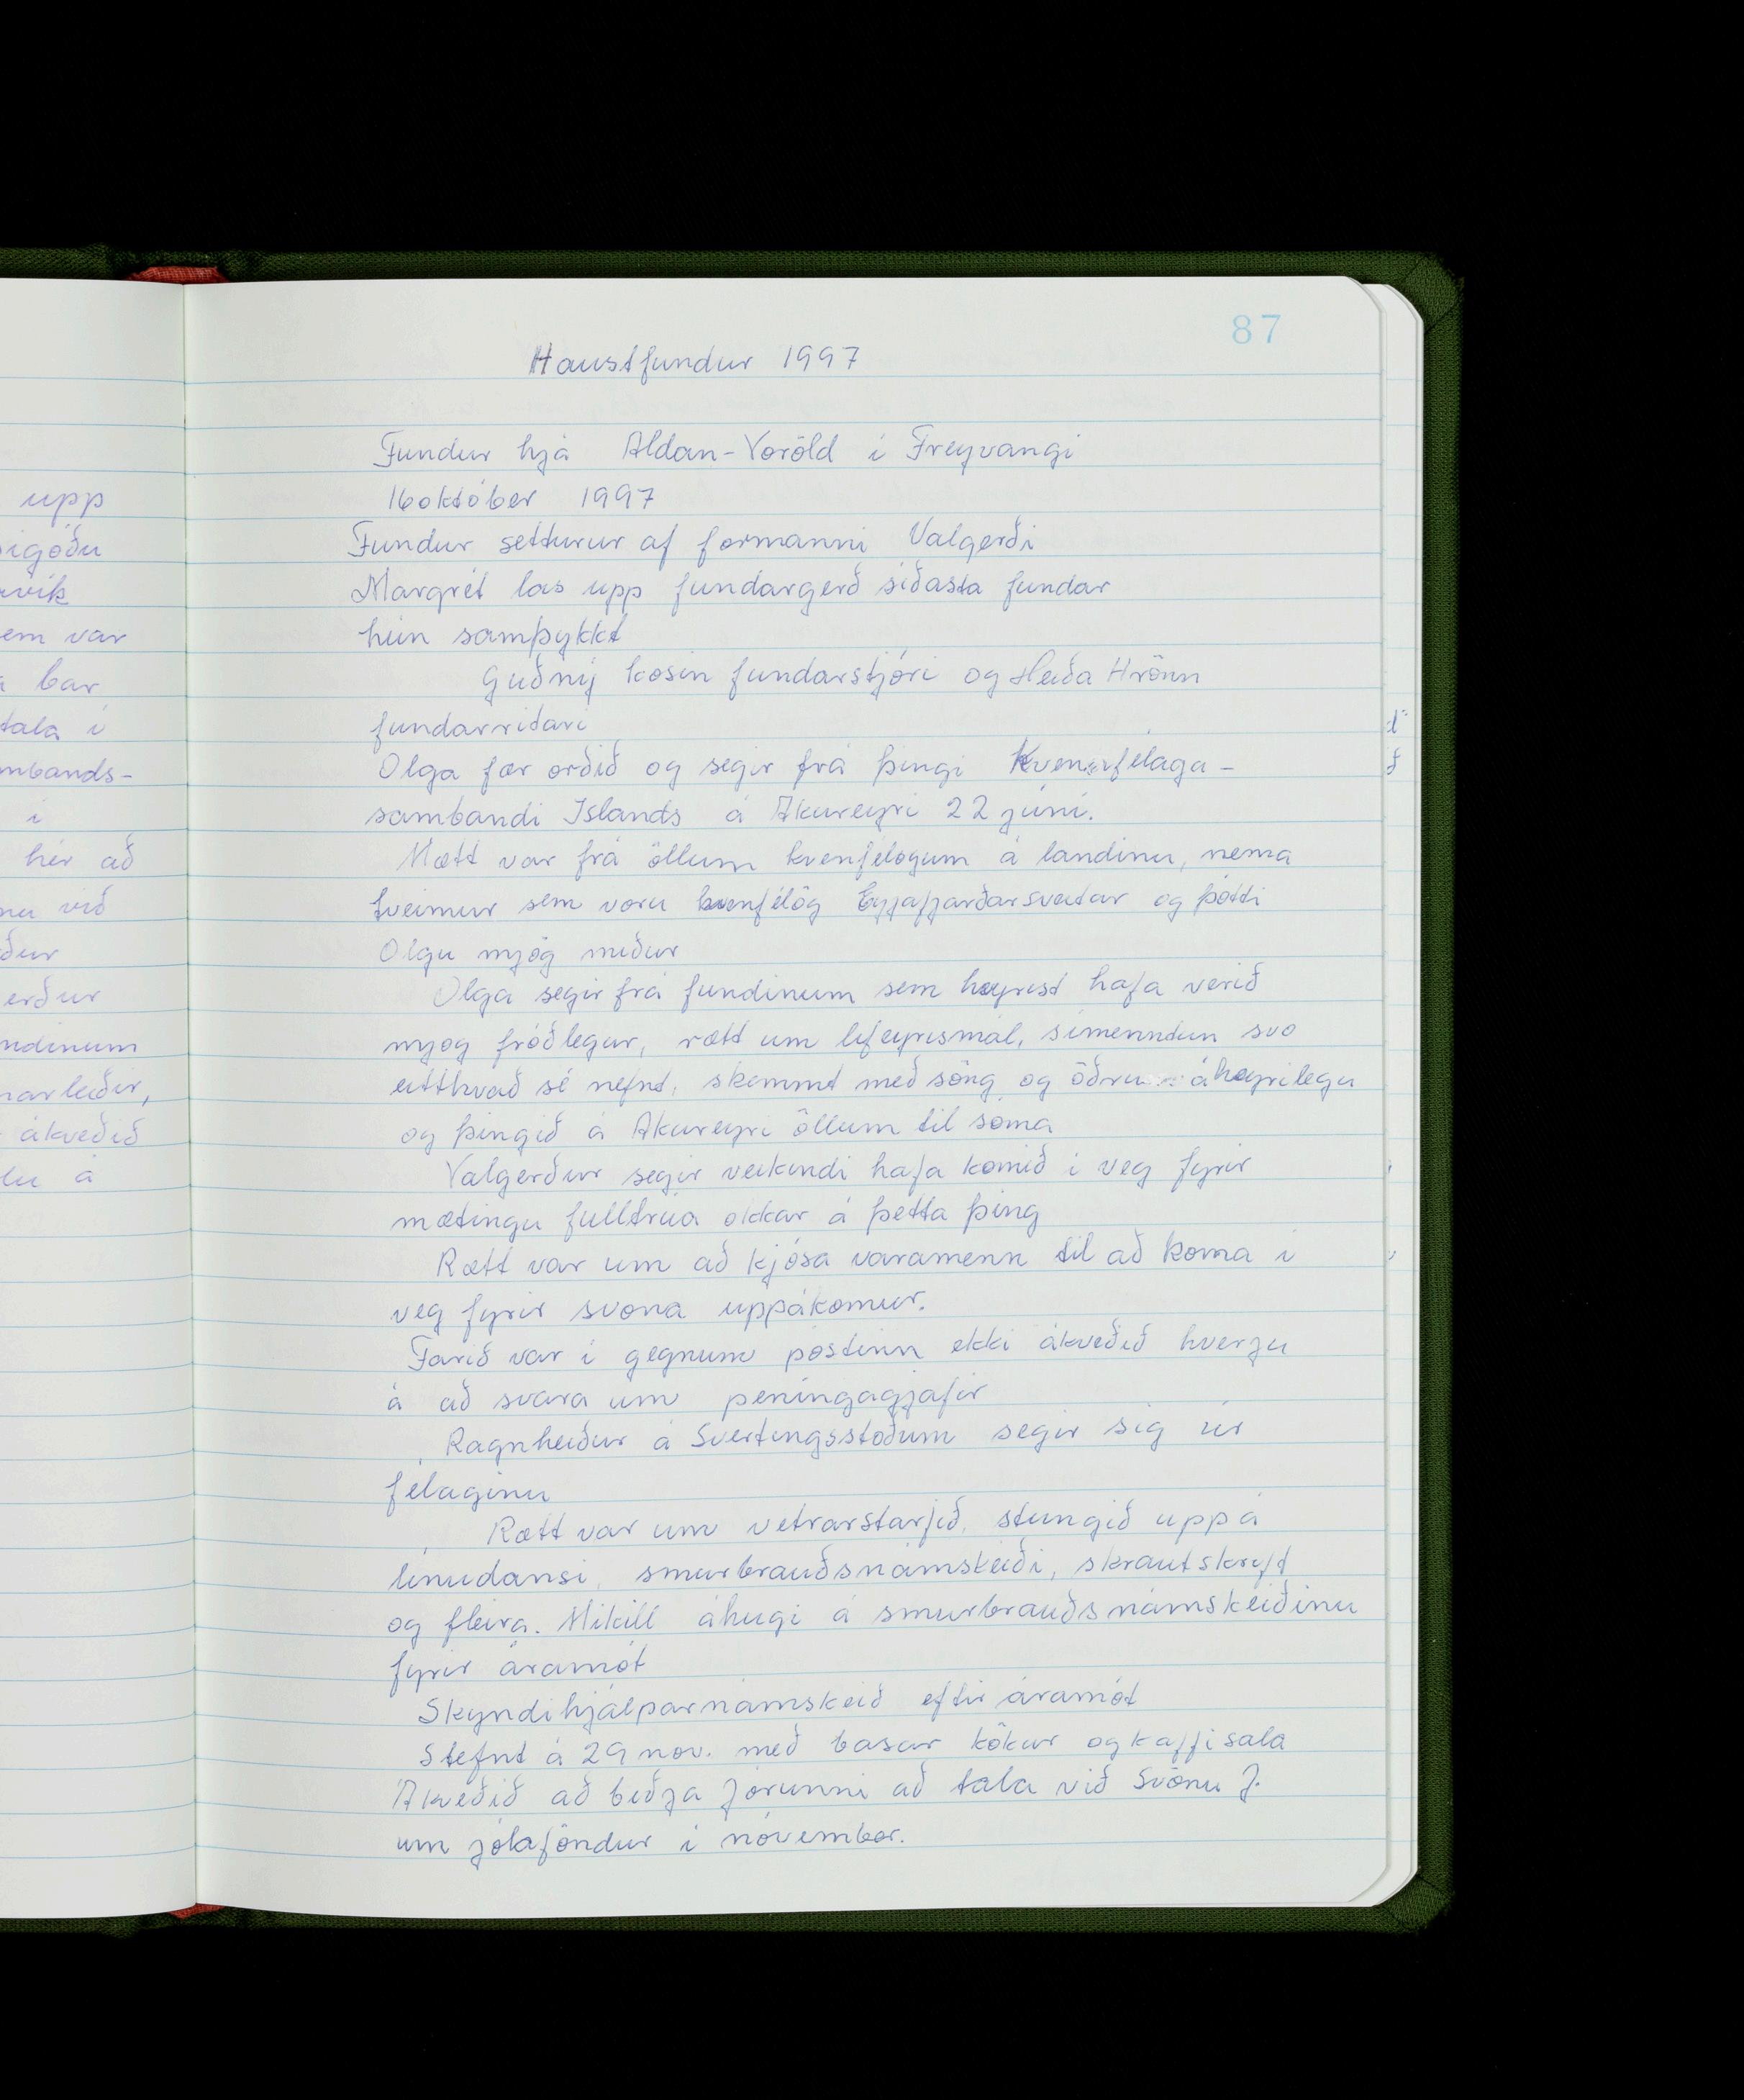 87
Haustfundur 1997
Fundur hjá Aldan-Voröld í Freyvangi
16 október 1997
Fundur setturur af formanni Valgerði
Margrét las upp fundargerð síðasta fundar
hún samþykkt
Guðný kosin fundarstjóri og Heiða Hrönn
fundarritari
Olga fær orðið og segir frá þingi Kvennfélaga-
sambandi Islands á Akureyri 22 júní.
Mætt var frá öllum kvenfélögum á landinu, nema
tveimur sem voru kvenfélög Eyjafjarðarsveitar og þótti
Olgu mjög miður
Olga segir frá fundinum sem heyrist hafa verið
mjög fróðlegur, rætt um lífeyrismál, símenntun svo
eitthvað sé nefnt, skemmt með söng og öðru áheyrilegu
og þingið á Akureyri öllum til sóma
Valgerður segir veikindi hafa komið í veg fyrir
mætingu fulltrúa okkar á þetta þing
Rætt var um að kjósa varamenn til að koma í
veg fyrir svona uppákomur.
Farið var í gegnum póstinn ekki ákveðið hverju
á að svara um peningagjafir
Ragnheiður á Svertingsstöðum segir sig úr
félaginu
Rætt var um vetrarstarfið, stungið uppá
línudansi, smurbrauðsnámskeiði, skrautskrift
og fleira. Mikill áhugi á smurbrauðsnámskeiðinu
fyrir áramót
Skyndihjálparnámskeið eftir áramót
Stefnt á 29 nov. með basar kökur og kaffisala
Ákveðið að biðja Jórunni að tala við Svönu J.
um jólaföndur í nóvember.
upp
em var
bar
tala í
mbands-
í
hér að
við
ður
erður
ndinum
arleiðir,
ákveðið
á